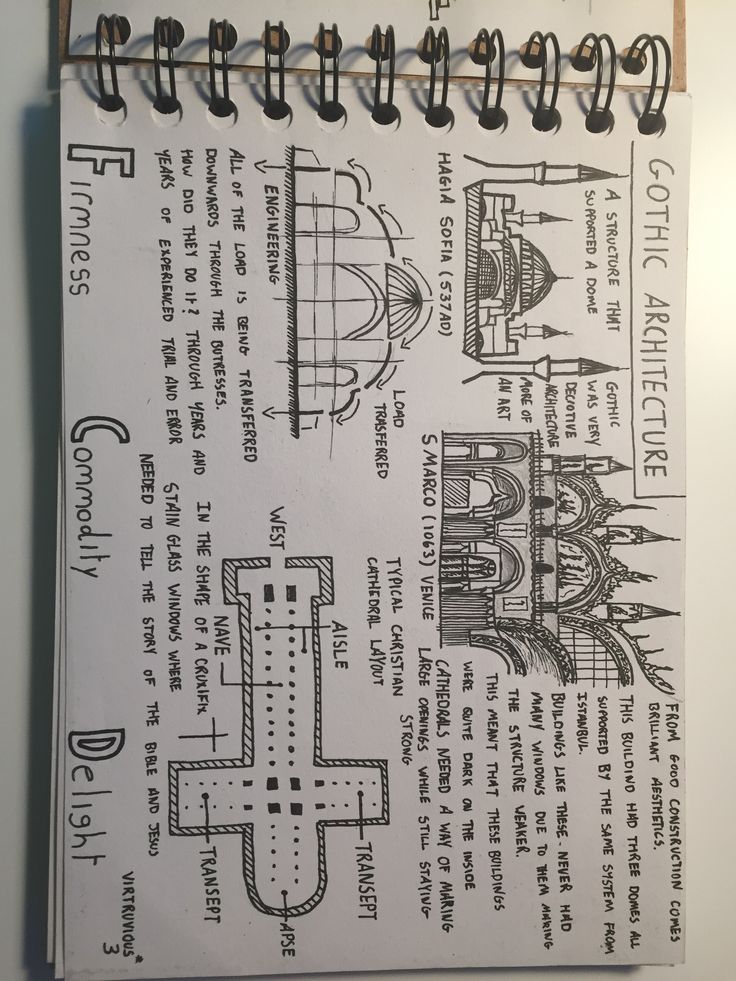 GOTHIC ARCHITECTURE
A STRUCTURE THAT
SUPPORTED A DOME
GOTHIC
WAS VERY
DECIOTIVE
ARCHITECTURE
MORE OF
AN ART
HAGIA SOFIA (537AD)
S MARCO (1063) VENICE
FROM GOOD CONSTRUCTION COMES
BRILLIANT AESTHETICS.
THIS BUILDIND HAD THREE DOMES ALL
SUPPORTED BY THE SAME SYSTEM FROM
ISTANBUL.
BUILDINGS LIKE THESE NEVER HAD
MANY WINDOWS DUE TO THEM MAKING
THE STRUCTURE WEAKER.
THIS MEANT THAT THESE BUILDINGS
WERE QUITE DARK ON THE INSIDE
CATHEDRALS NEEDED A WAY OF MARING
LARGE OPENINGS WHILE STILL STAYING
STRONG
LOAD
TRASFERRED
ENGINEERING
ALL OF THE LOAD IS BEING TRANSFERRED
DOWNWARDS THROUGH THE BUTRESSES.
HOW DID THEY DO IT? THROUGH YEARS AND
YEARS OF EXPERIENCED TRIAL AND ERROR
TYPICAL CHRISTIAN
CATHEDRAL LAYOUT
WEST
AISLE
NAVE
TRANSEPT
TRANSEPT
APSE
IN THE SHAPE OF A CRUXIFIX
STAIN GLASS WINDOWS WHERE
NEEDED TO TELL THE STORY OF THE BIBLE AND JESUS
Firmness Commodity Delight
VIRTRUVIOUS*
3